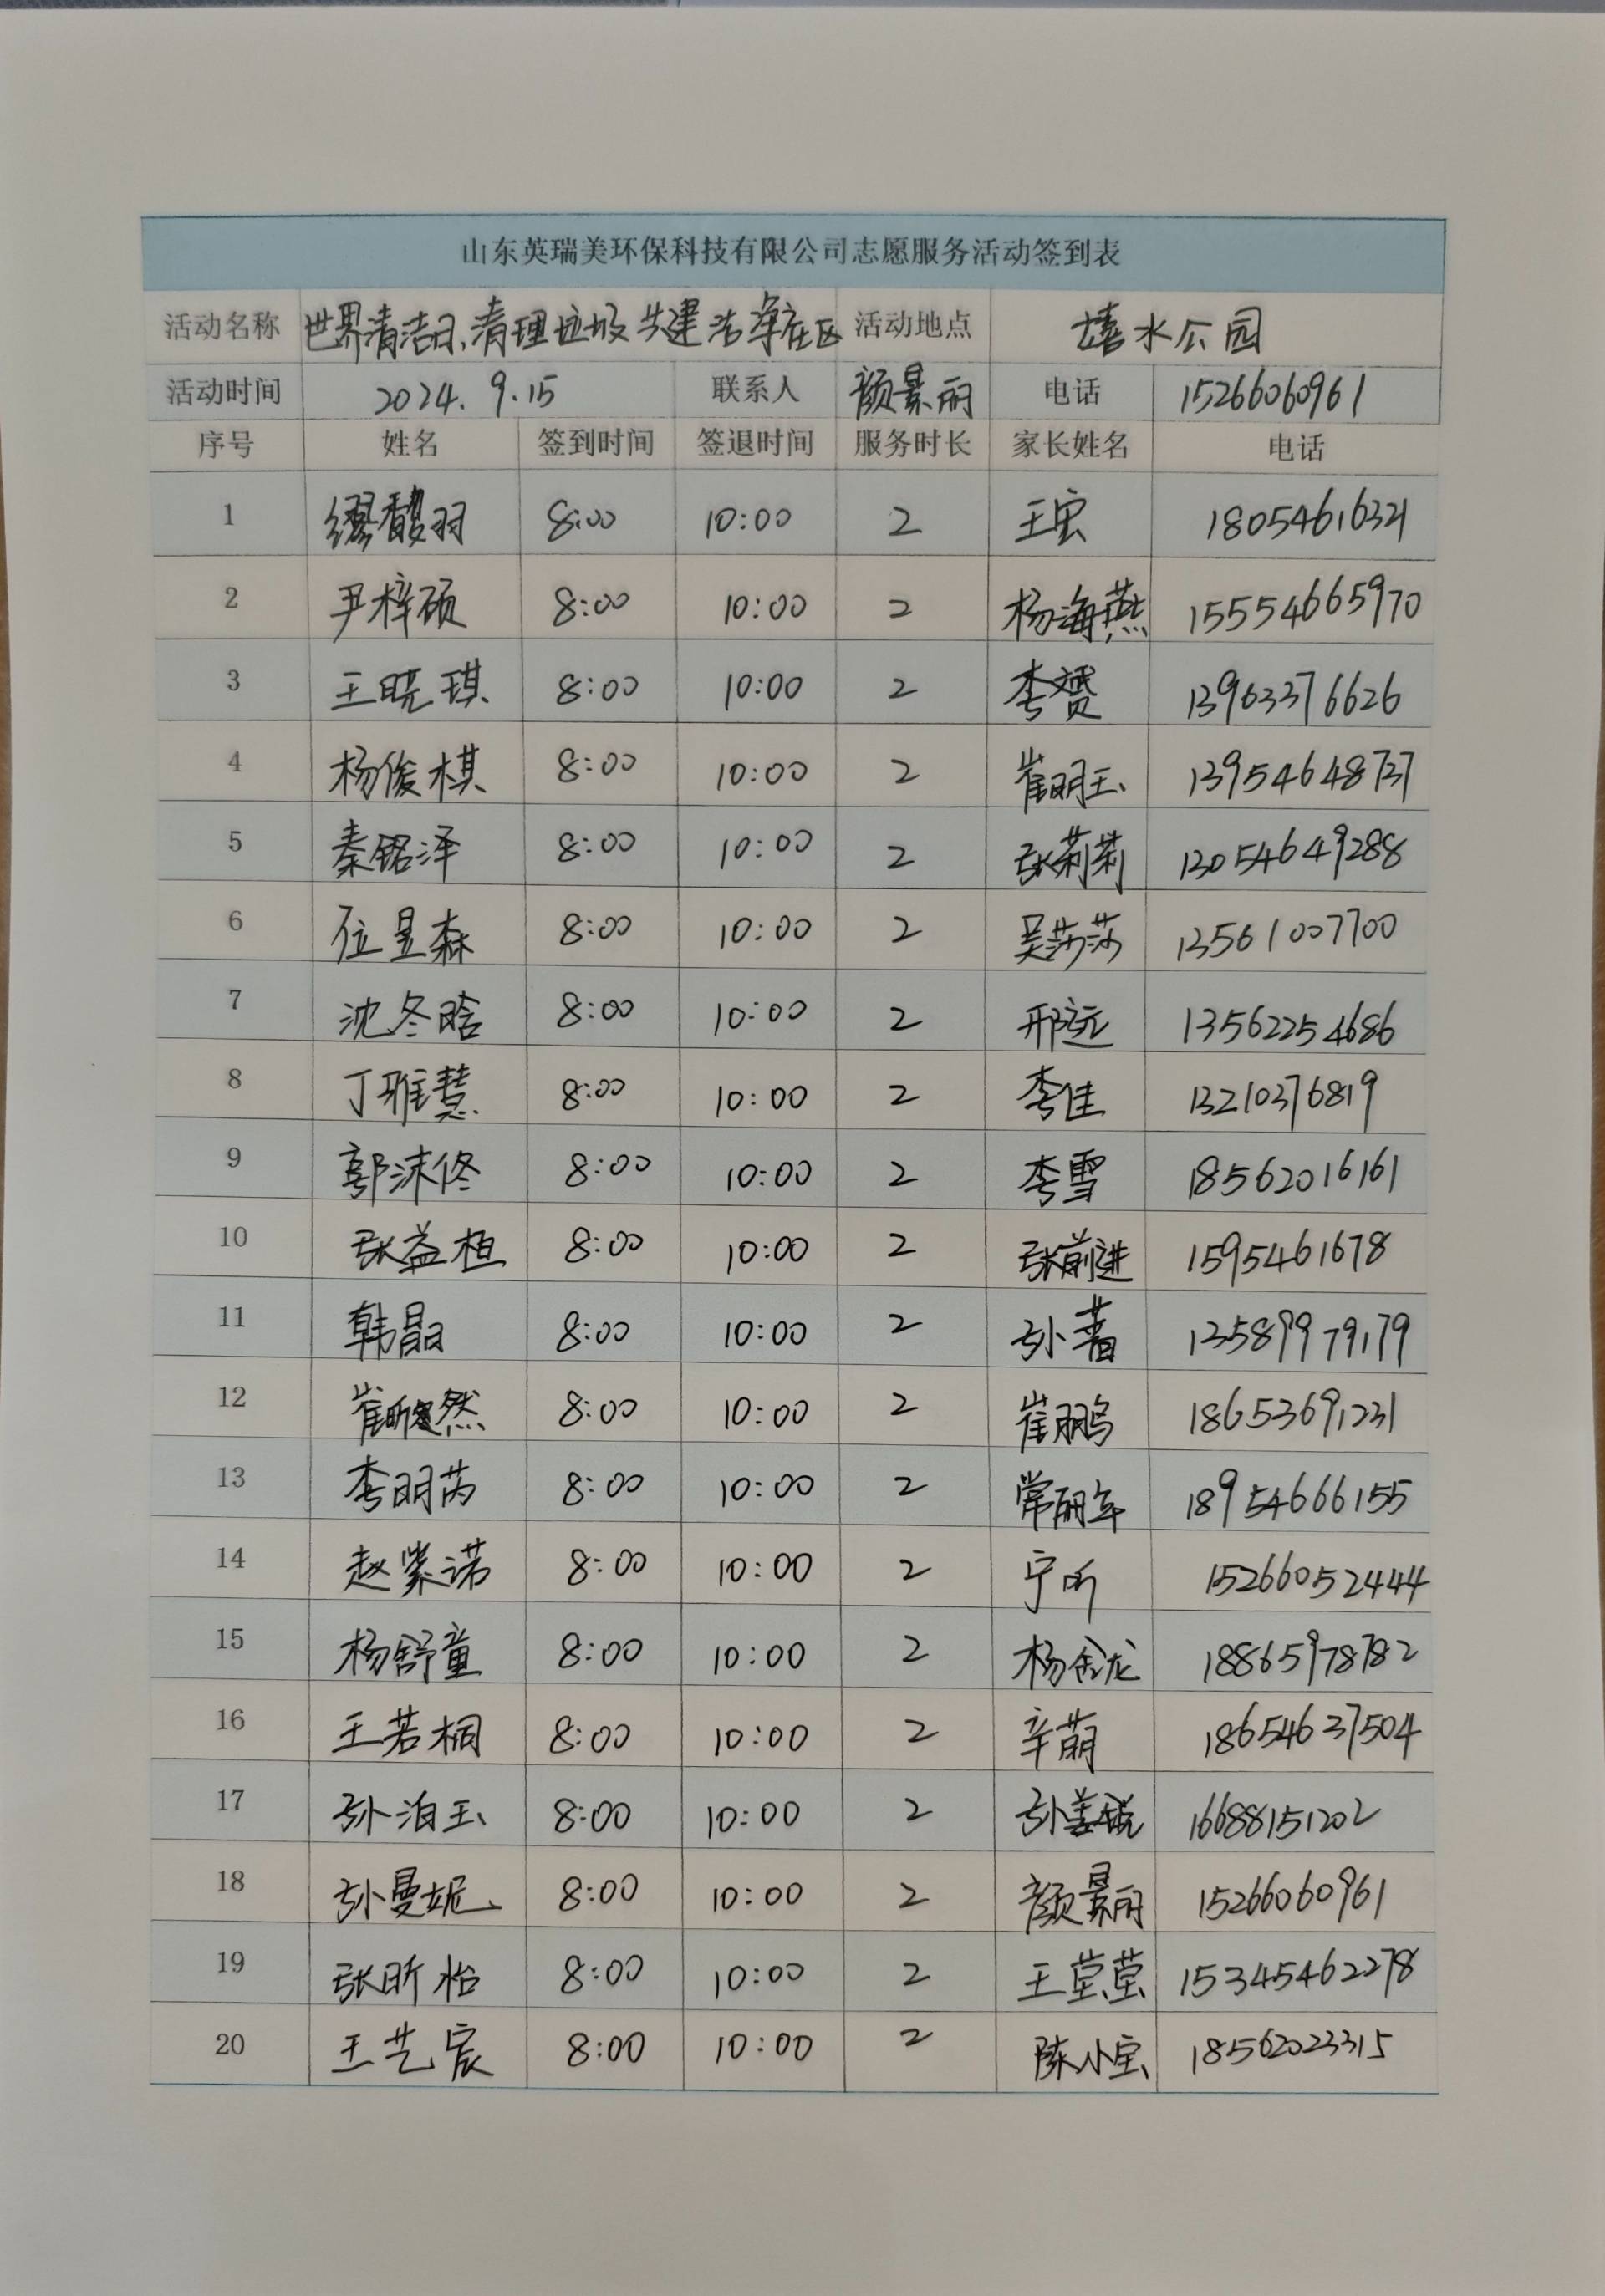 山东英瑞美环保科技有限公司志愿服务活动签到表
活动名称 世界清洁日、清理垃圾共建洁净社区 活动地点 嬉水公园
活动时间 2024.9.15 联系人 颜景丽 电话 15266060961
序号 姓名 签到时间 签退时间 服务时长 家长姓名 电话
1 缪馥羽 8:00 10:00 2 王宝 18054616321
2 尹梓硕 8:00 10:00 2 杨海燕 15554665970
3 王晓琪 8:00 10:00 2 李赟 13963376626
4 杨俊棋 8:00 10:00 2 崔明玉 13954648737
5 秦铭泽 8:00 10:00 2 张莉莉 13054649288
6 位昱森 8:00 10:00 2 吴莎莎 13561007700
7 沈冬晗 8:00 10:00 2 邢远 13562254686
8 丁雅慧 8:00 10:00 2 李佳 13210376819
9 郭沫佟 8:00 10:00 2 李雪 18562016161
10 张益桓 8:00 10:00 2 张前进 1595461678
11 韩晶 8:00 10:00 2 孙著 13589979179
12 崔然 8:00 10:00 2 崔鹏 18653691231
13 李明芮 8:00 10:00 2 常丽 18954666155
14 赵紫诺 8:00 10:00 2 宁昕 15266052444
15 杨舒童 8:00 10:00 2 杨金龙 18865978782
16 王若桐 8:00 10:00 2 辛萌 18654637504
17 孙泊玉 8:00 10:00 2 孙美锐 16688151202
18 孙曼妮 8:00 10:00 2 颜景丽 15266060961
19 张昕怡 8:00 10:00 2 王莹莹 15345462278
20 王艺宸 8:00 10:00 2 陈小宝 18562023315